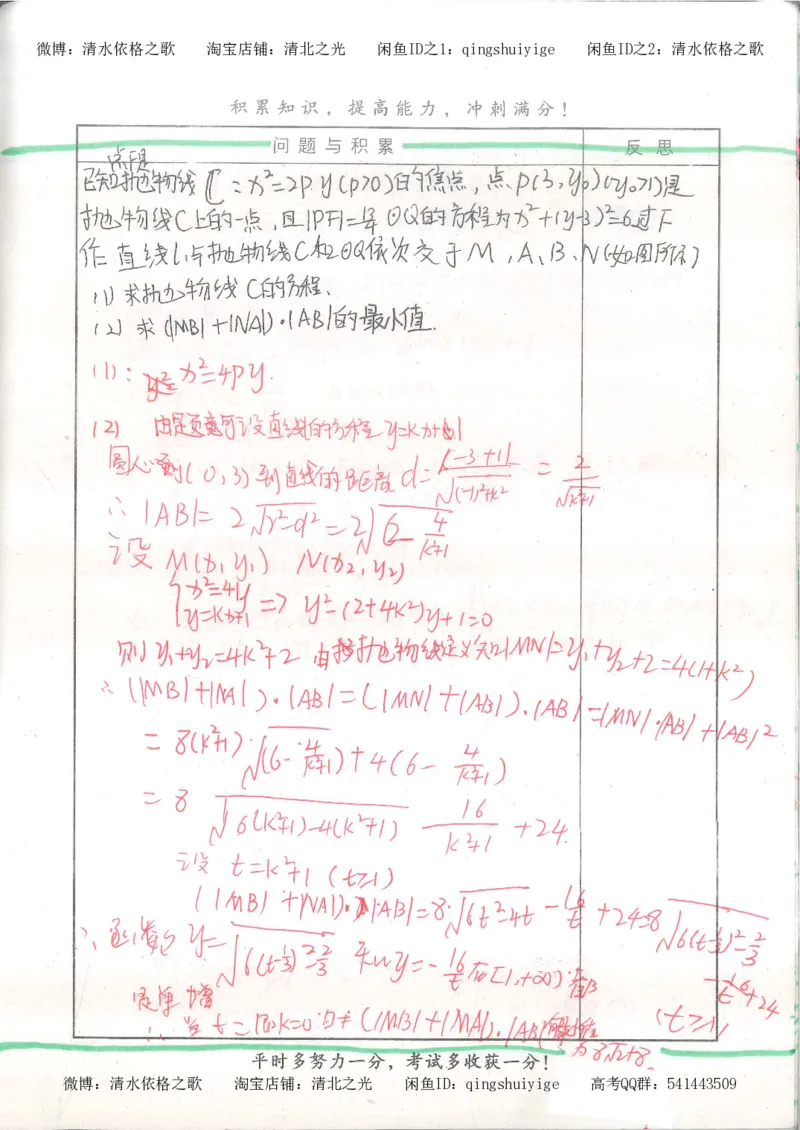 微博：清水依格之歌 淘宝店铺：清北之光 闲鱼ID之1：qingshuiyige 闲鱼ID之2：清水依格之歌
积累知识，提高能力，冲刺满分！
问题与积累 反思
点F是
已知抛物线C：x²=2py(p>0)的焦点，点P(3,y₀)(y₀>1)是
抛物线C上的一点，且|PF|= ⊙Q的方程为x²+(y-3)²=6过F
作直线l与抛物线C和⊙Q依次交于M,A、B、N(如图所示)
(1)求抛物线C的方程.
(2)求(|MB|+|NA|)·|AB|的最小值.
(1)：x²=4py.
(2) 由题意可设直线的方程y=kx+1
圆心到(0,3)到直线的距离d=|-3+1|/√((-1)²+k²) = 2/√(k²+1)
∴|AB|=2√(r²-d²)=2√(6-4/(k²+1))
设M(x,y₁) N(x₂,y₂)
{x²=4y
y=kx+1 => y²-(2+4k²)y+1=0
则y₁+y₂=4k²+2 由抛物线定义知|MN|=y₁+y₂+2=4(1+k²)
∴(|MB|+|NA|)·|AB|=(|MN|+|AB|)·|AB|=|MN|·|AB|+|AB|²
=8(k²+1)·√(6-4/(k²+1))+4(6-4/(k²+1))
=8√(6(k²+1)-4(k²+1)) - 16/(k²+1) +24.
设t=k²+1 (t≥1)
(|MB|+|NA|)·|AB|=8·√(6t²-4t)-16/t+24=8√(6(t-1/3)²-2/3)-16/t+24
(t≥1)
∴函数y=√(6(t-1/3)²-2/3)和y=-16/t在[1,+∞)皆
是单增
∴当t=1即k=0时(|MB|+|NA|)·|AB|
为8√2+8.
平时多努力一分，考试多收获一分！
微博：清水依格之歌 淘宝店铺：清北之光 闲鱼ID：qingshuiyige 高考QQ群：541443509